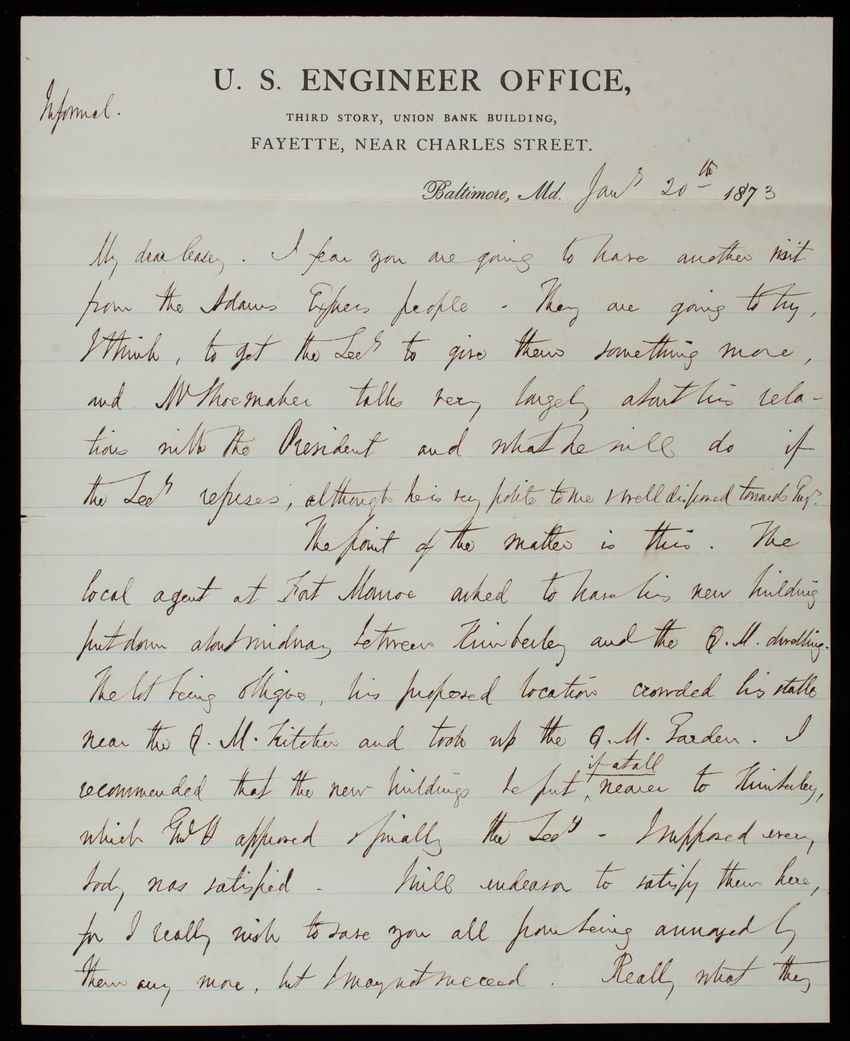 U. S. ENGINEER OFFICE,
Informal.
THIRD STORY, UNION BANK BUILDING,
FAYETTE, NEAR CHARLES STREET.
Baltimore, Md. Jany 20th 1873
My dear Casey. I fear you are going to have another visit
from the Adams Express people - They are going to try,
I think, to get the Secy to give them something more,
and Mr Shoemaker talks very largely about his rela-
tions with the President and what he will do if
the Secy refuses, although he is very polite to me & well disposed towards Engrs.
The point of the matter is this. The
local agent at Fort Monroe asked to have his new building
put down about midway between Kimberley and the Q. M. dwelling.
The lot being oblique, his proposed location crowded his stable
near the Q. M. Kitchen and took up the Q. M. Garden. I
recommended that the new buildings be put, if at all nearer to Kimberley,
which Genl H approved & finally the Secy - I supposed every
body was satisfied - Will endeavor to satisfy them here,
for I really wish to save you all from being annoyed by
them any more, but I may not succeed. Really what they